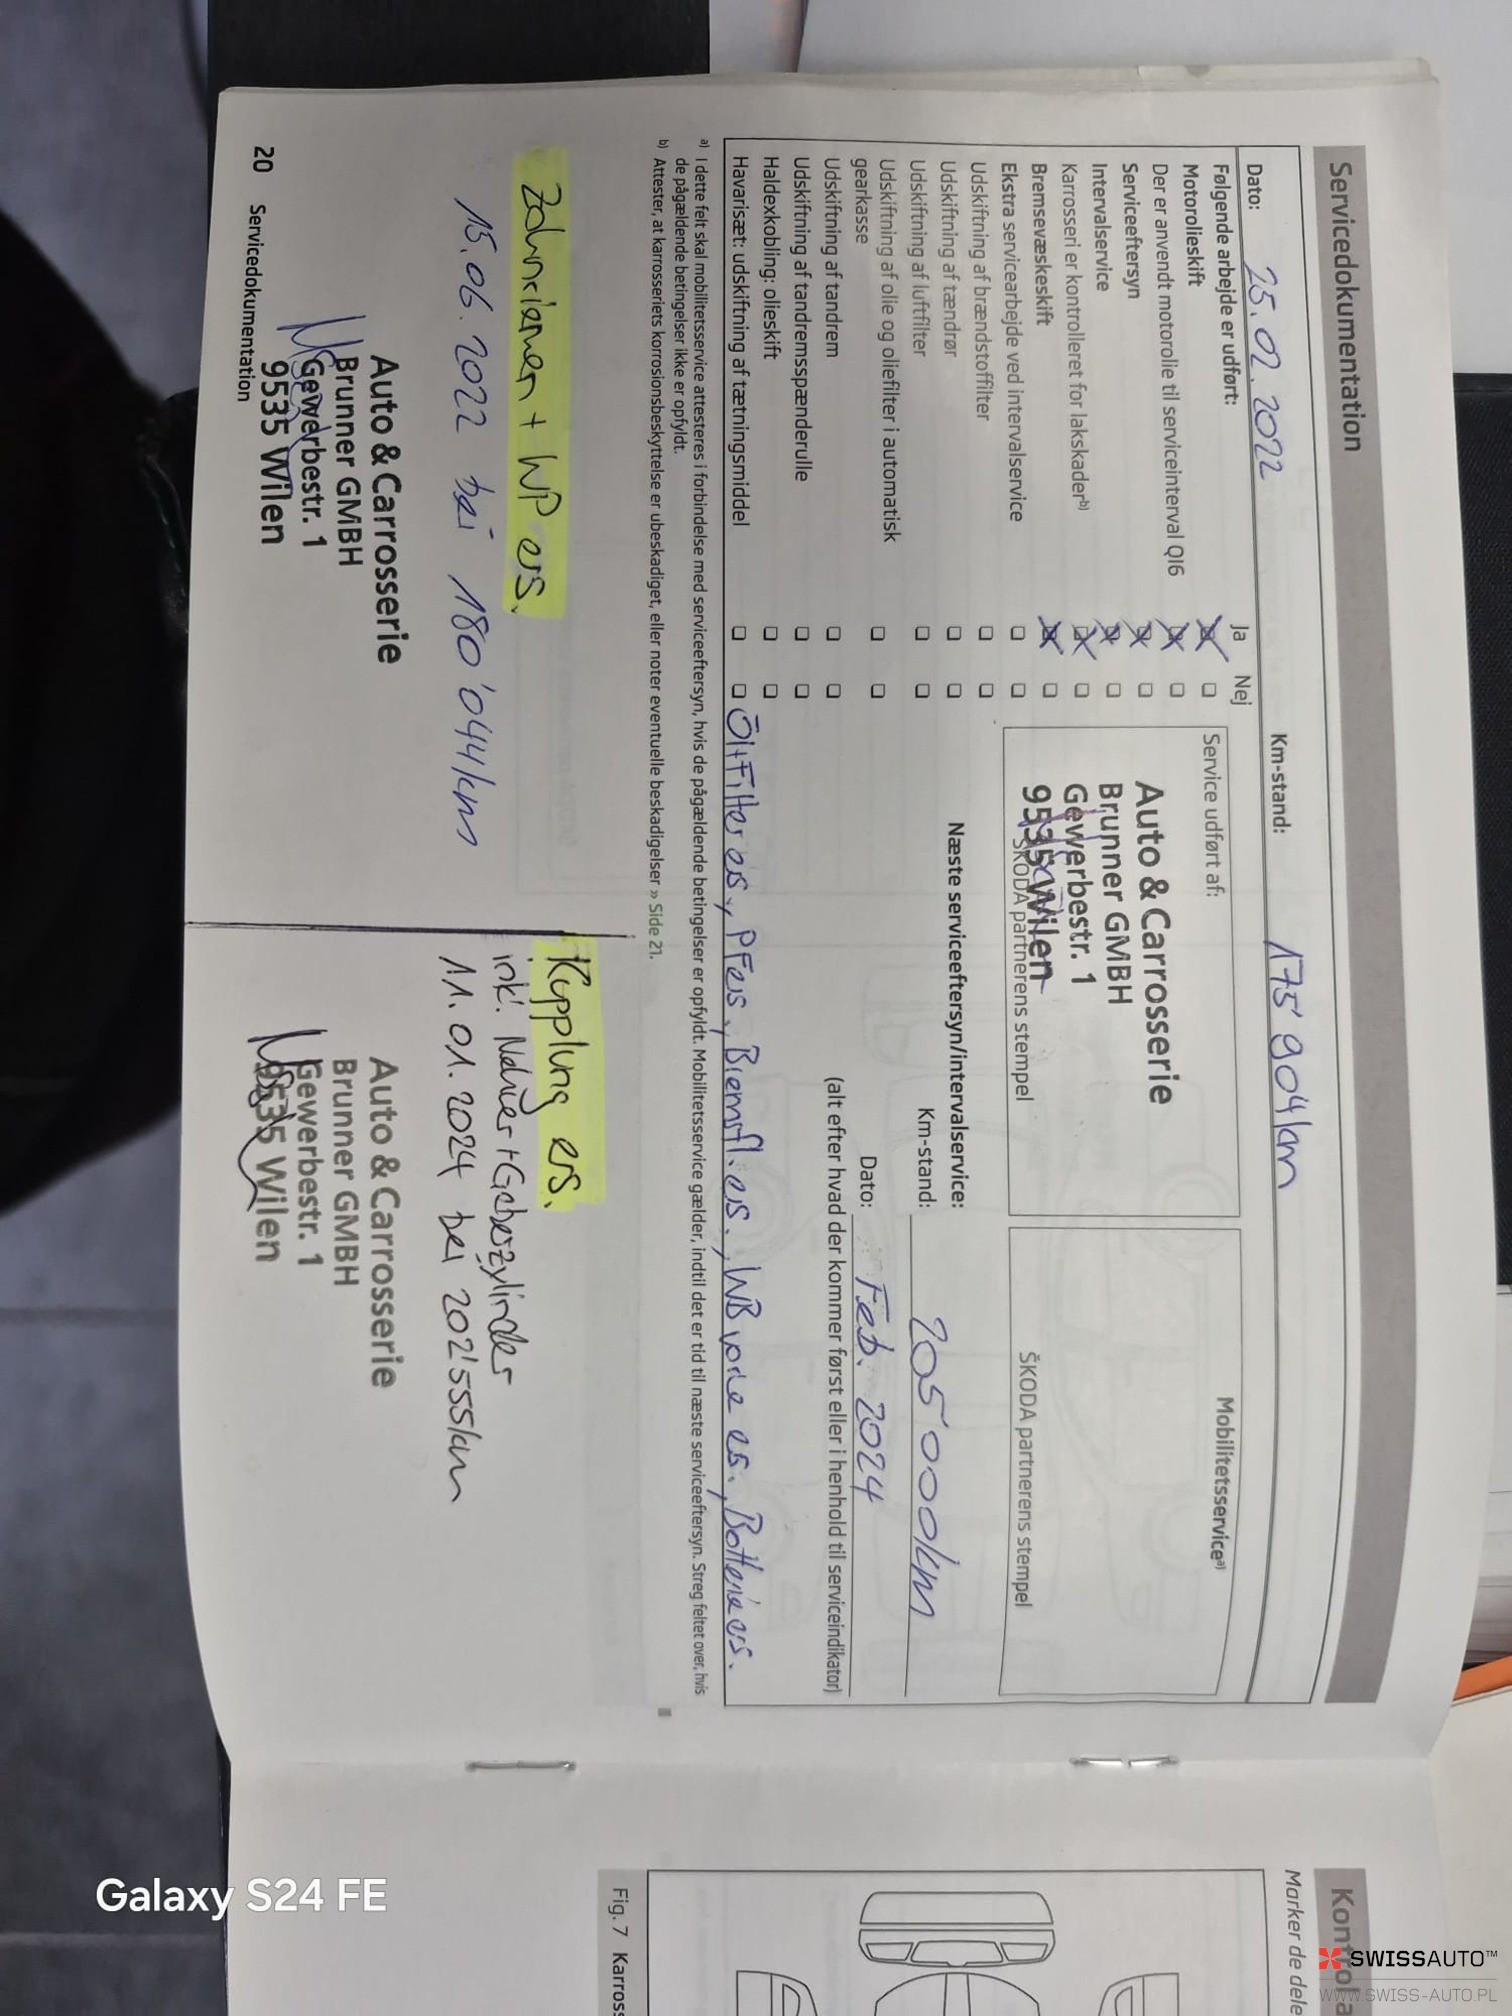 Servicedokumentation
Dato: 25.02.2022 Km-stand: 175'904km
Følgende arbejde er udført: Ja Nej
Motorolieskift
Der er anvendt motorolie til serviceinterval QI6
Serviceeftersyn
Intervalservice
Karrosseri er kontrolleret for lakskader b)
Bremsevæskeskift
Ekstra servicearbejde ved intervalservice
Udskiftning af brændstoffilter
Udskiftning af tændrør
Udskiftning af luftfilter
Udskiftning af olie og oliefilter i automatisk
gearkasse
Udskiftning af tandrem
Udskiftning af tandremsspænderulle
Haldexkobling: olieskift
Havarisæt: udskiftning af tætningsmiddel
Service udført af:
Auto & Carrosserie
Brunner GMBH
Gewerbestr. 1
9535 Wilen
ŠKODA partnerens stempel
Mobilitetsservice a)
ŠKODA partnerens stempel
Næste serviceeftersyn/intervalservice:
Km-stand: 205'000km
Dato: Feb. 2024
(alt efter hvad der kommer først eller i henhold til serviceindikator)
Öl+Filter ers., PF ers., Bremsfl. ers., WB vorne ers., Batterie ers.
a) I dette felt skal mobilitetsservice attesteres i forbindelse med serviceeftersyn, hvis de pågældende betingelser er opfyldt. Mobilitetsservice gælder, indtil det er tid til næste serviceeftersyn. Streg feltet over, hvis
de pågældende betingelser ikke er opfyldt.
b) Attester, at karrosseriets korrosionsbeskyttelse er ubeskadiget, eller noter eventuelle beskadigelser » Side 21.
Zahnriemen + WP ers.
15.06.2022 bei 180'044km
Auto & Carrosserie
Brunner GMBH
Gewerbestr. 1
9535 Wilen
Kupplung ers.
inkl. Nehmer+Geberzylinder
11.01.2024 bei 202'555km
Auto & Carrosserie
Brunner GMBH
Gewerbestr. 1
9535 Wilen
20 Servicedokumentation
Marker de dele
Fig. 7 Karross
Galaxy S24 FE
SWISSAUTO™
WWW.SWISS-AUTO.PL